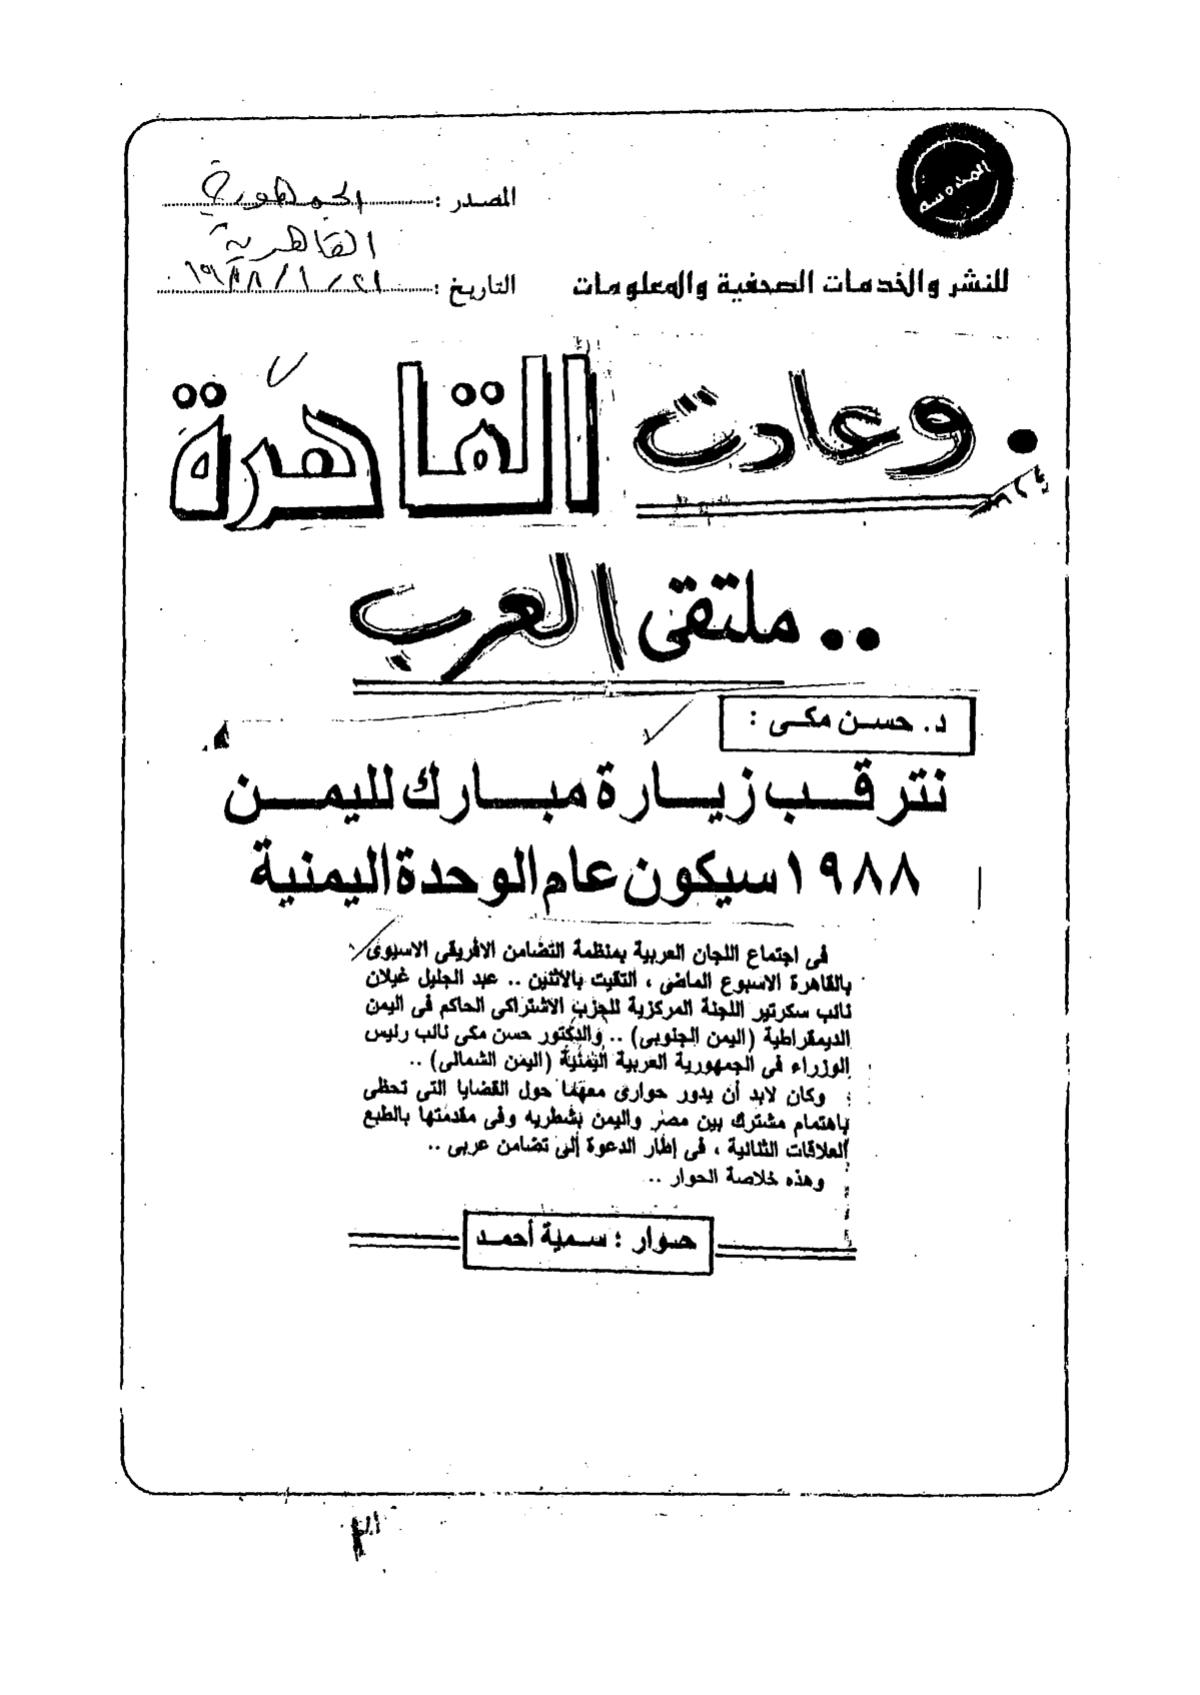 المصدر : الجمهورية
القاهرية
للنشر والخدمات الصحفية والمعلومات
التاريخ : ٢١ / ١ / ١٩٨٨
وعادت القاهرة
.. ملتقى العرب
د. حسن مكى :
نترقب زيارة مبارك لليمن
١٩٨٨ سيكون عام الوحدة اليمنية
فى اجتماع اللجان العربية بمنظمة التضامن الافريقى الاسيوى
بالقاهرة الاسبوع الماضى ، التقيت بالاثنين .. عبد الجليل غيلان
نائب سكرتير اللجنة المركزية للحزب الاشتراكى الحاكم فى اليمن
الديمقراطية (اليمن الجنوبى) .. والدكتور حسن مكى نائب رئيس
الوزراء فى الجمهورية العربية اليمنية (اليمن الشمالى) ..
وكان لابد أن يدور حوارى معهما حول القضايا التى تحظى
باهتمام مشترك بين مصر واليمن بشطريه وفى مقدمتها بالطبع
العلاقات الثنائية ، فى إطار الدعوة إلى تضامن عربى ..
وهذه خلاصة الحوار ..
حوار : سمية أحمد